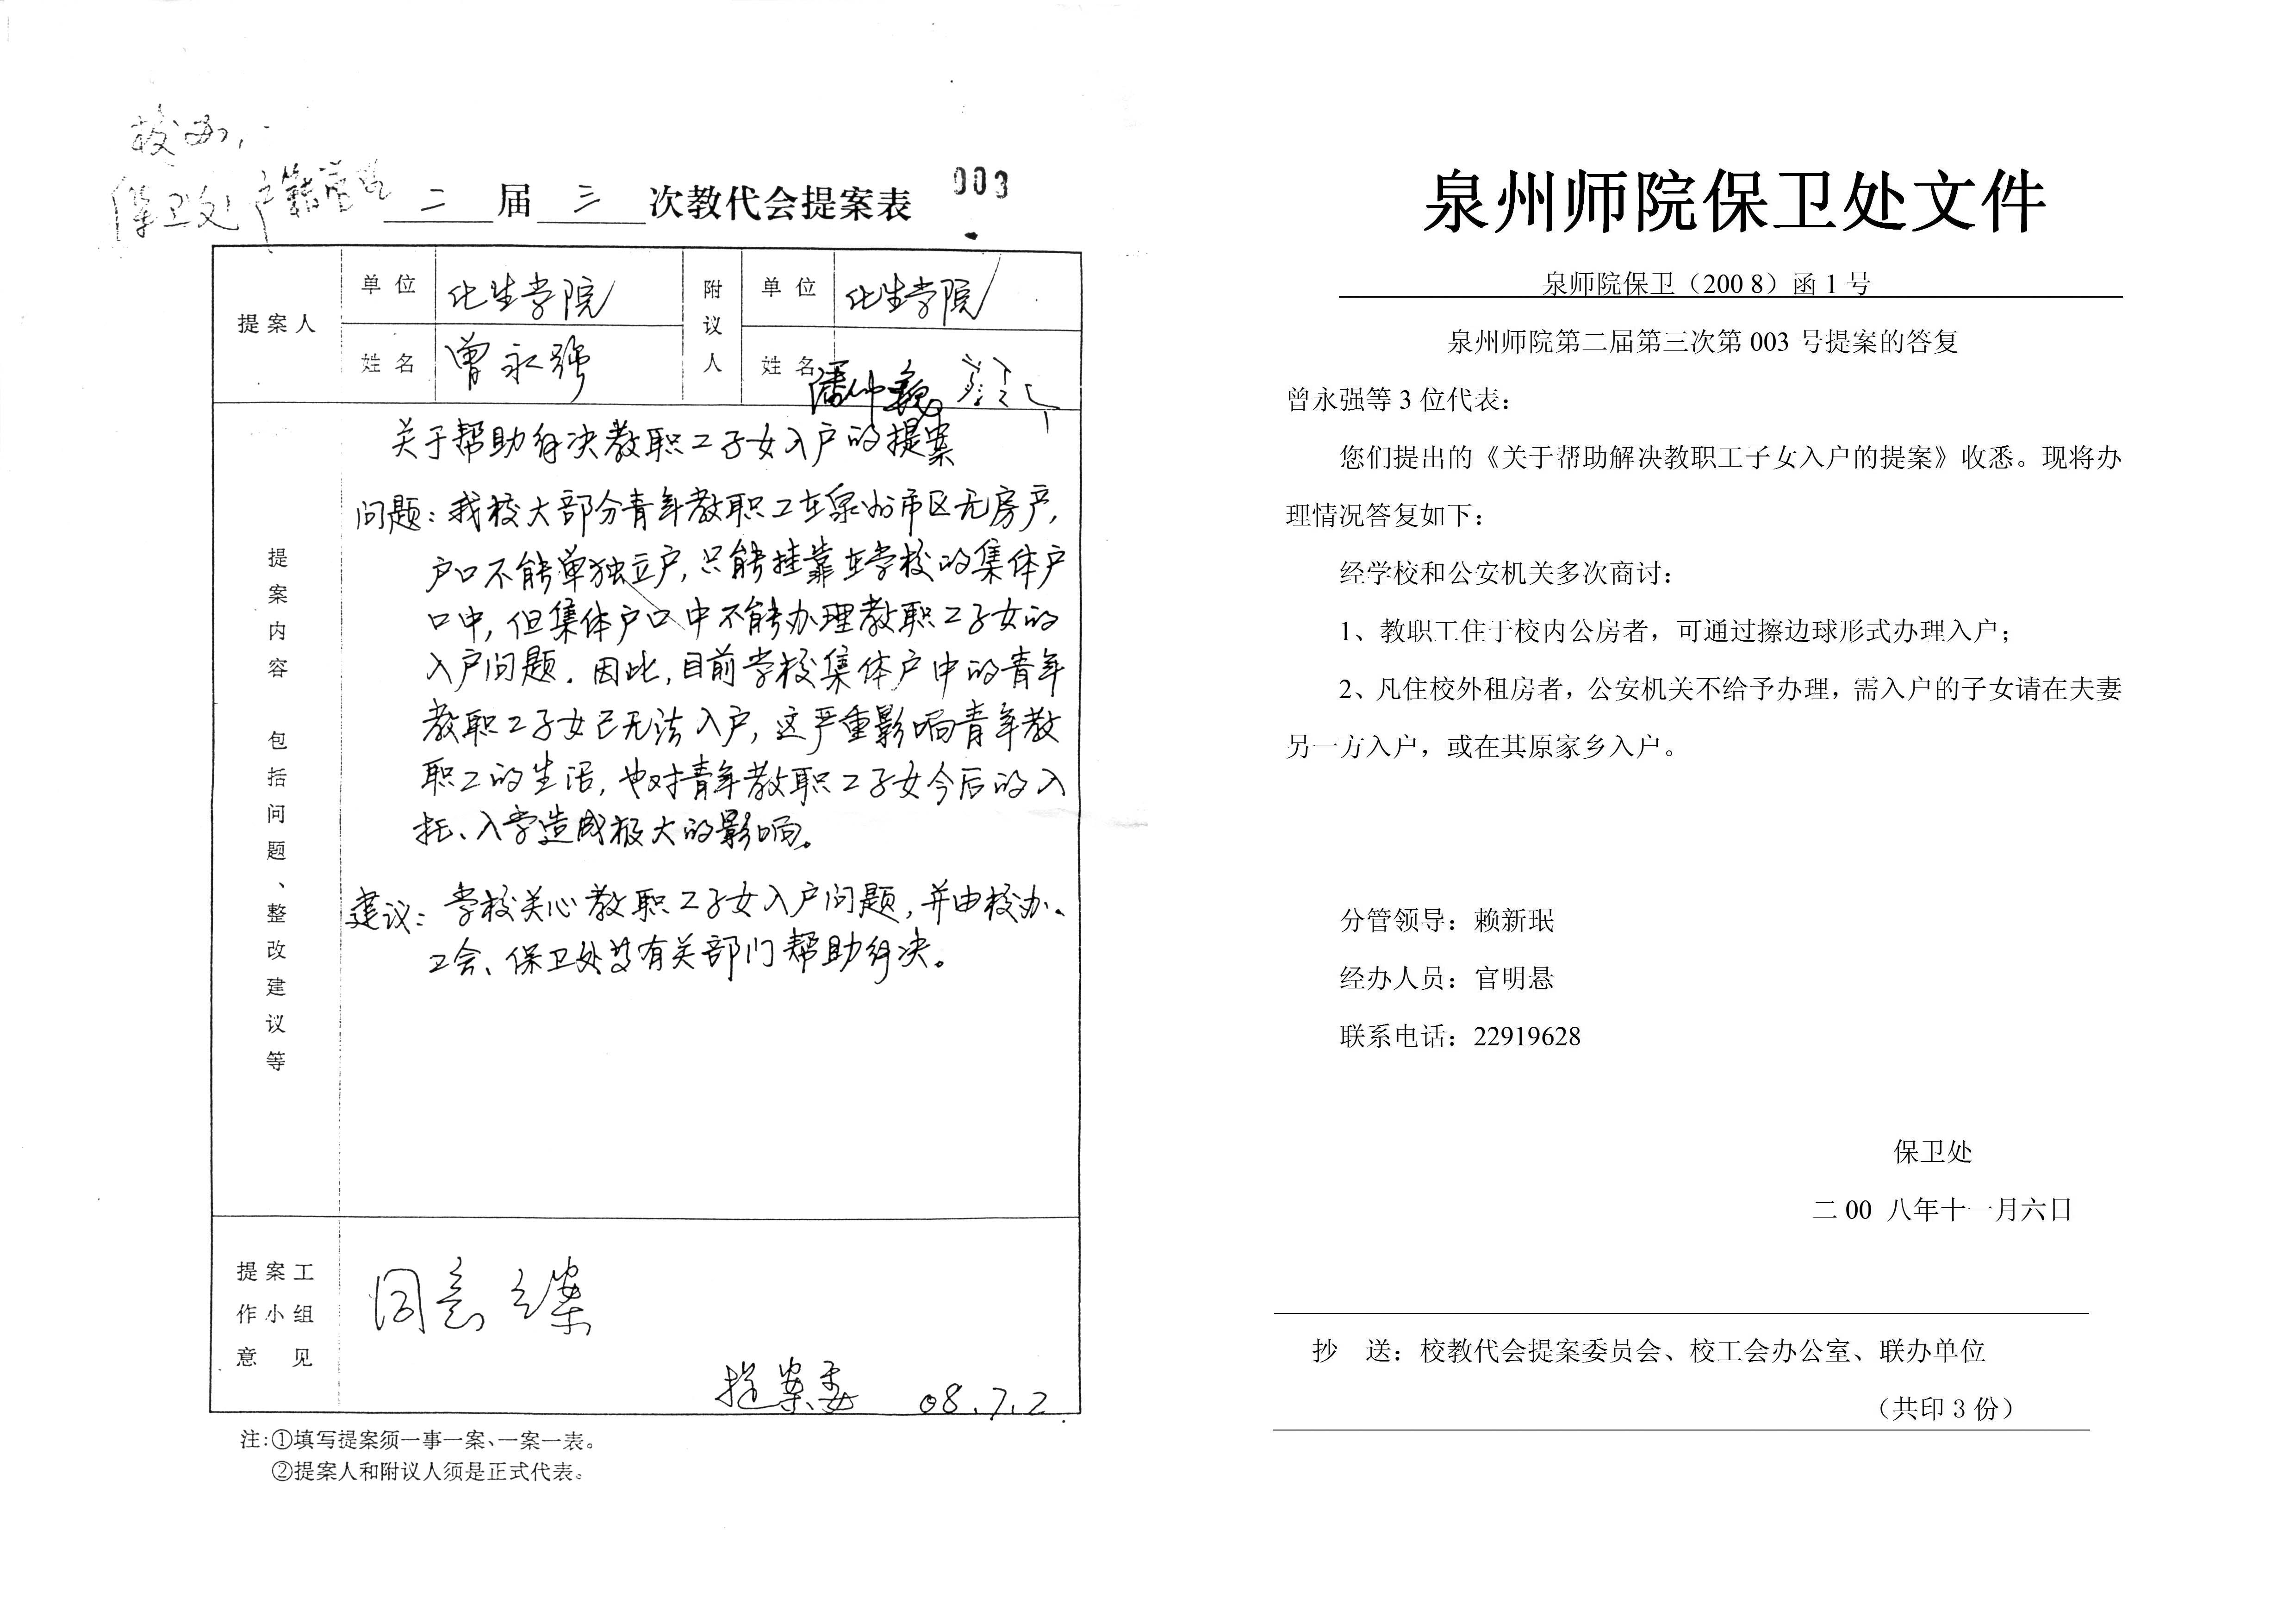 校办，
保卫处 户籍
二 届 三 次教代会提案表
003
提案人
单位
化生学院
姓名
曾永强
附议人
单位
化生学院
姓名
潘仲巍
提案内容 包括问题、整改建议等
关于帮助解决教职工子女入户的提案
问题：我校大部分青年教职工在泉州市区无房产，
户口不能单独立户，只能挂靠在学校的集体户
口中，但集体户口中不能办理教职工子女的
入户问题．因此，目前学校集体户中的青年
教职工子女已无法入户，这严重影响青年教
职工的生活，也对青年教职工子女今后的入
托、入学造成极大的影响。
建议：学校关心教职工子女入户问题，并由校办、
工会、保卫处等有关部门帮助解决。
提案工
作小组
意 见
同意立案
提案委 08.7.2
注:①填写提案须一事一案、一案一表。
②提案人和附议人须是正式代表。
泉州师院保卫处文件
泉师院保卫（200 8）函 1 号
泉州师院第二届第三次第 003 号提案的答复
曾永强等 3 位代表：
您们提出的《关于帮助解决教职工子女入户的提案》收悉。现将办
理情况答复如下：
经学校和公安机关多次商讨：
1、教职工住于校内公房者，可通过擦边球形式办理入户；
2、凡住校外租房者，公安机关不给予办理，需入户的子女请在夫妻
另一方入户，或在其原家乡入户。
分管领导：赖新珉
经办人员：官明悬
联系电话：22919628
保卫处
二 00 八年十一月六日
抄 送：校教代会提案委员会、校工会办公室、联办单位
（共印 3 份）